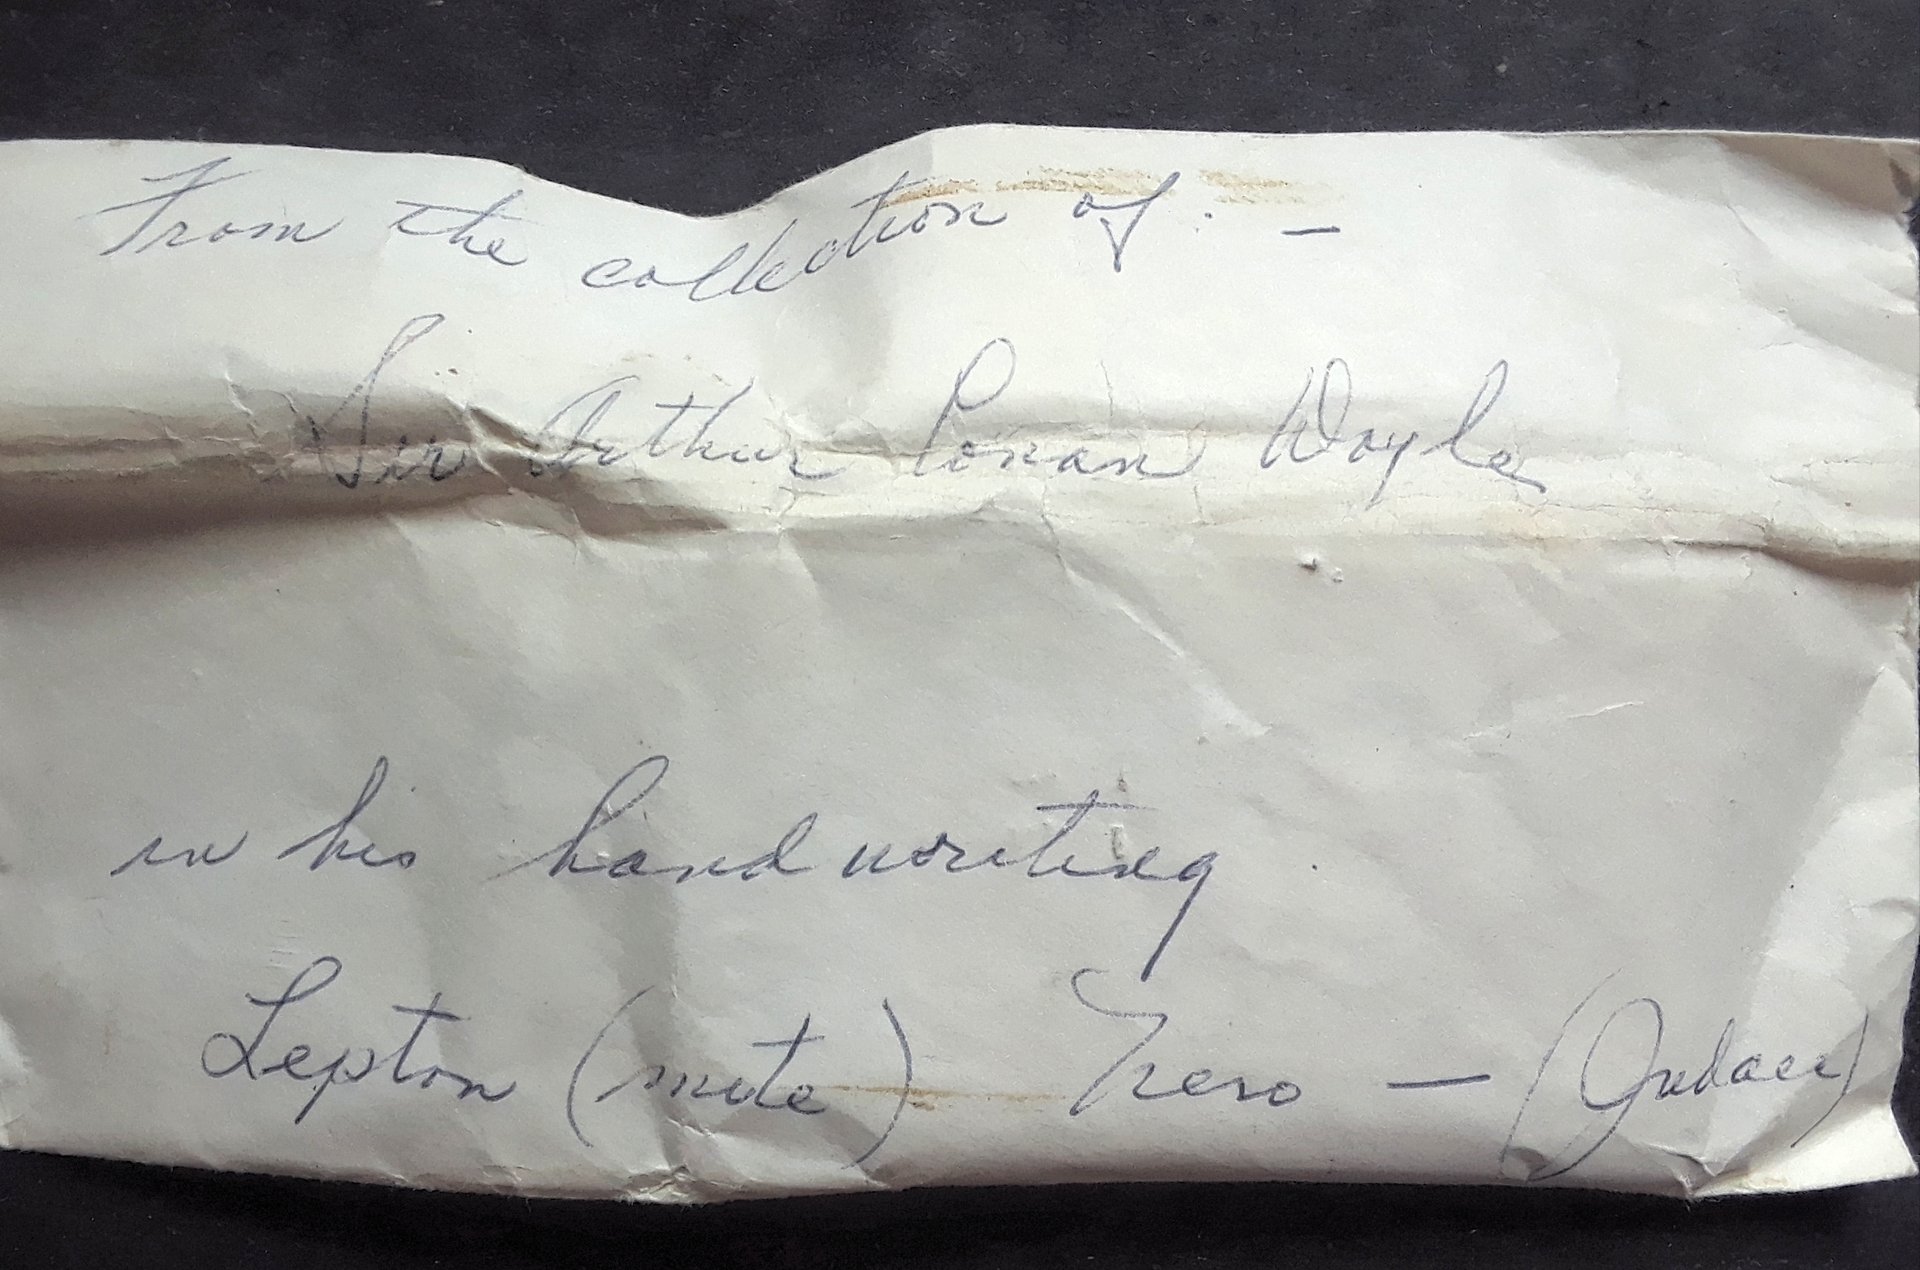 From the collection of: —
Sir Arthur Conan Doyle
in his handwriting
Lepton (mite) Nero — (Judaea)